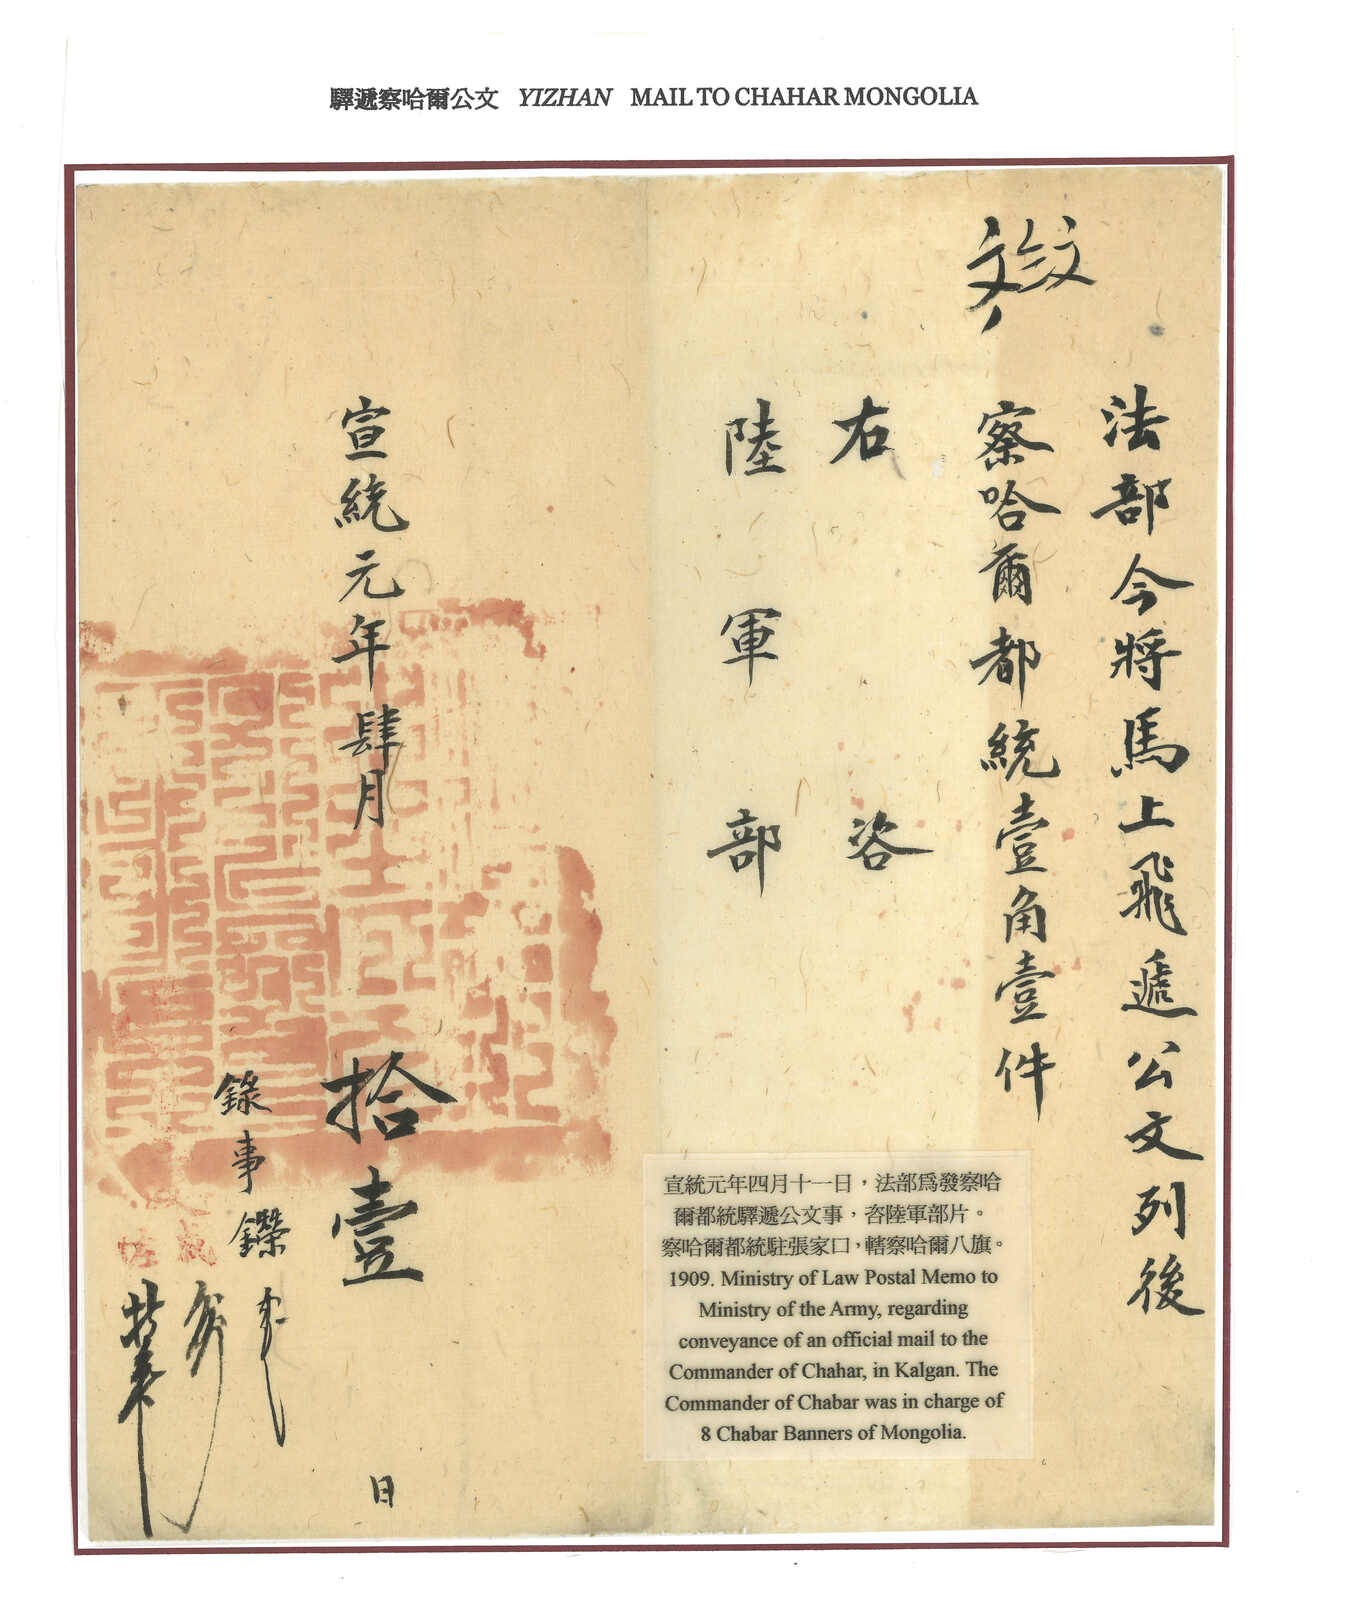 驛遞察哈爾公文 YIZHAN MAIL TO CHAHAR MONGOLIA
法部今將馬上飛遞公文列後
察哈爾都統壹角壹件
右咨
陸軍部
宣統元年肆月拾壹日
錄事鑅
宣統元年四月十一日，法部爲發察哈
爾都統驛遞公文事，咨陸軍部片。
察哈爾都統駐張家口，轄察哈爾八旗。
1909. Ministry of Law Postal Memo to
Ministry of the Army, regarding
conveyance of an official mail to the
Commander of Chahar, in Kalgan. The
Commander of Chabar was in charge of
8 Chabar Banners of Mongolia.